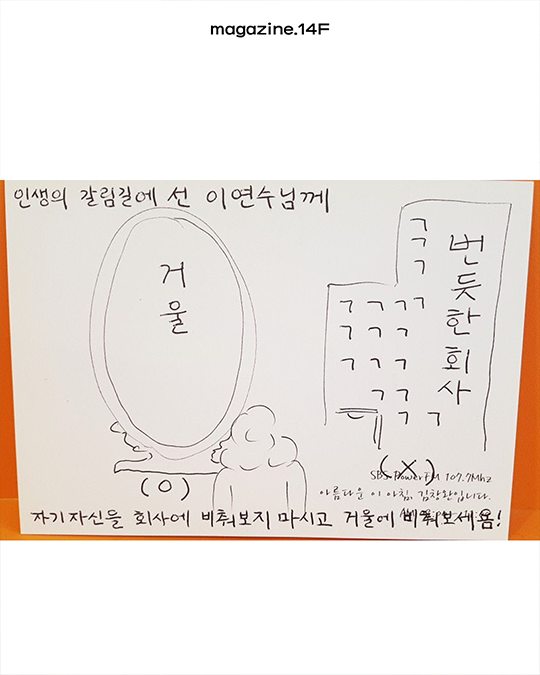 magazine.14F
인생의 갈림길에 선 이연수님께
거울
번듯한회사
ㄱ
ㄱ
ㄱ
ㄱ ㄱ ㄱ ㄱ
ㄱ ㄱ ㄱ
ㄱ ㄱ ㄱ
ㄱ ㄱ
ㄱ ㄱ
(O)
(X)
SBS PowerFM 107.7Mhz
아름다운 이 아침, 김창완입니다.
자기자신을 회사에 비춰보지 마시고 거울에 비춰보세욤!